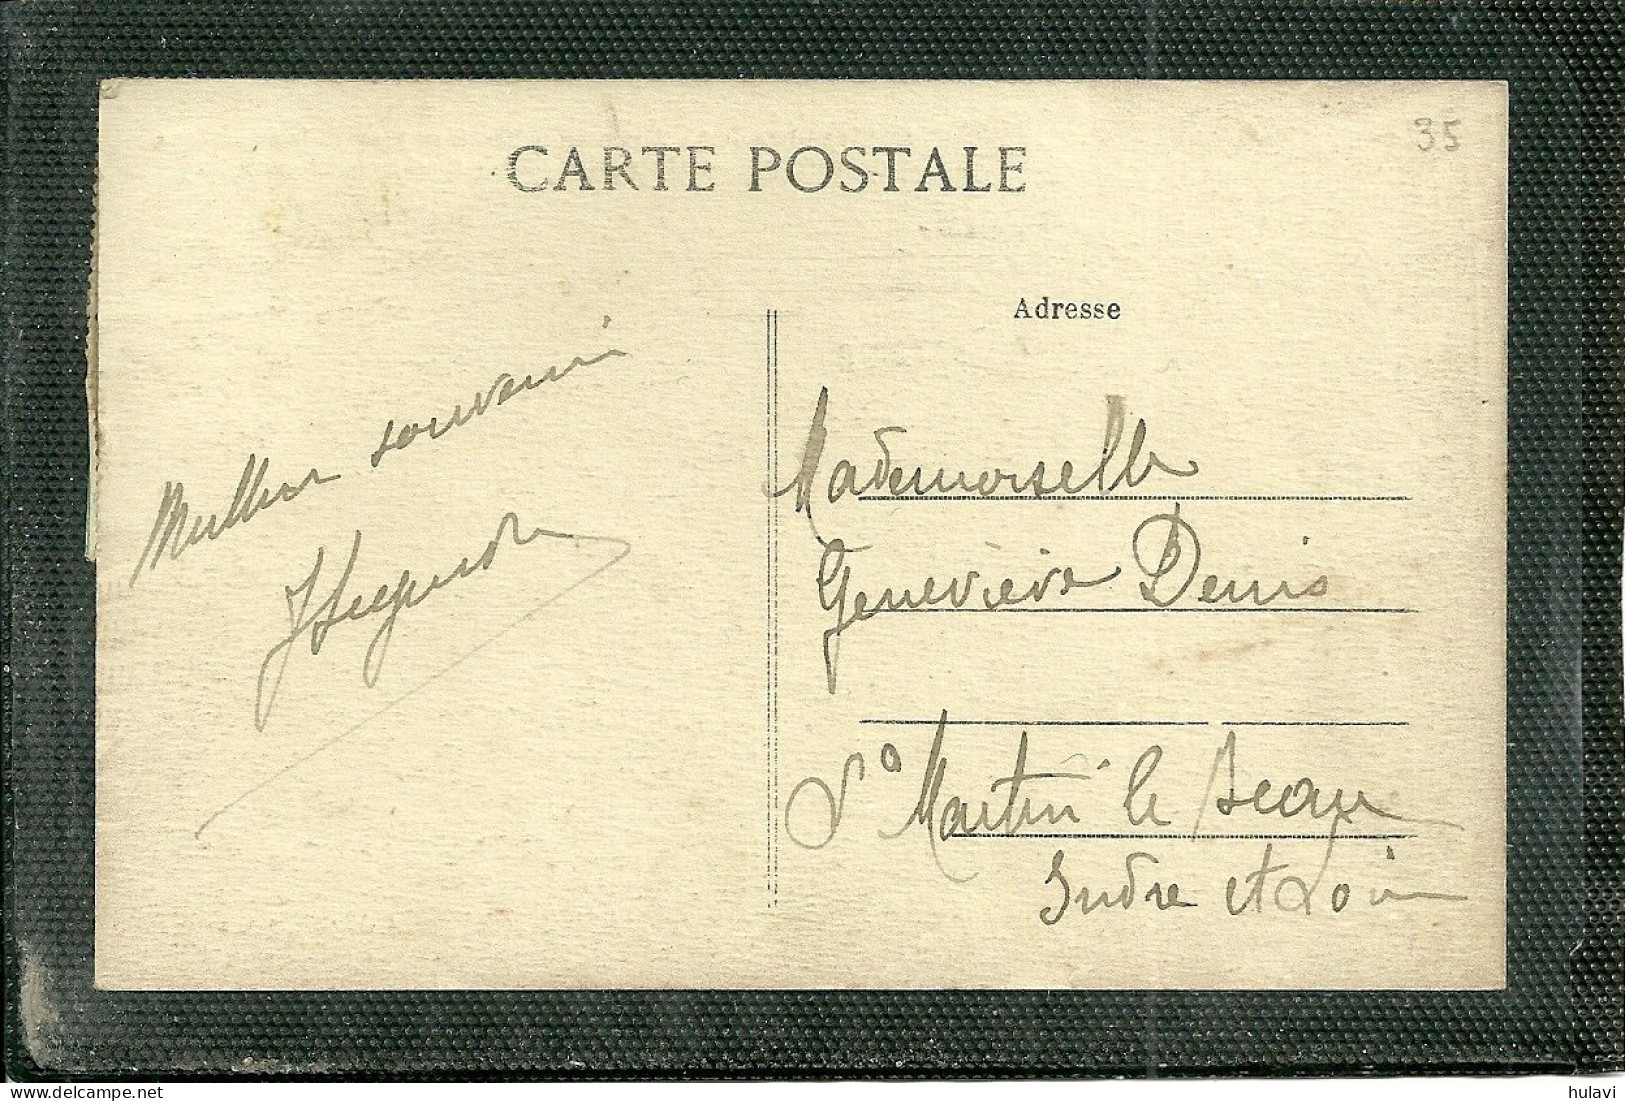 35
CARTE POSTALE
Adresse
Meilleur souvenir
Mademoiselle
Geneviève Denis
St Martin le Beau
Indre et Loire
hulavi